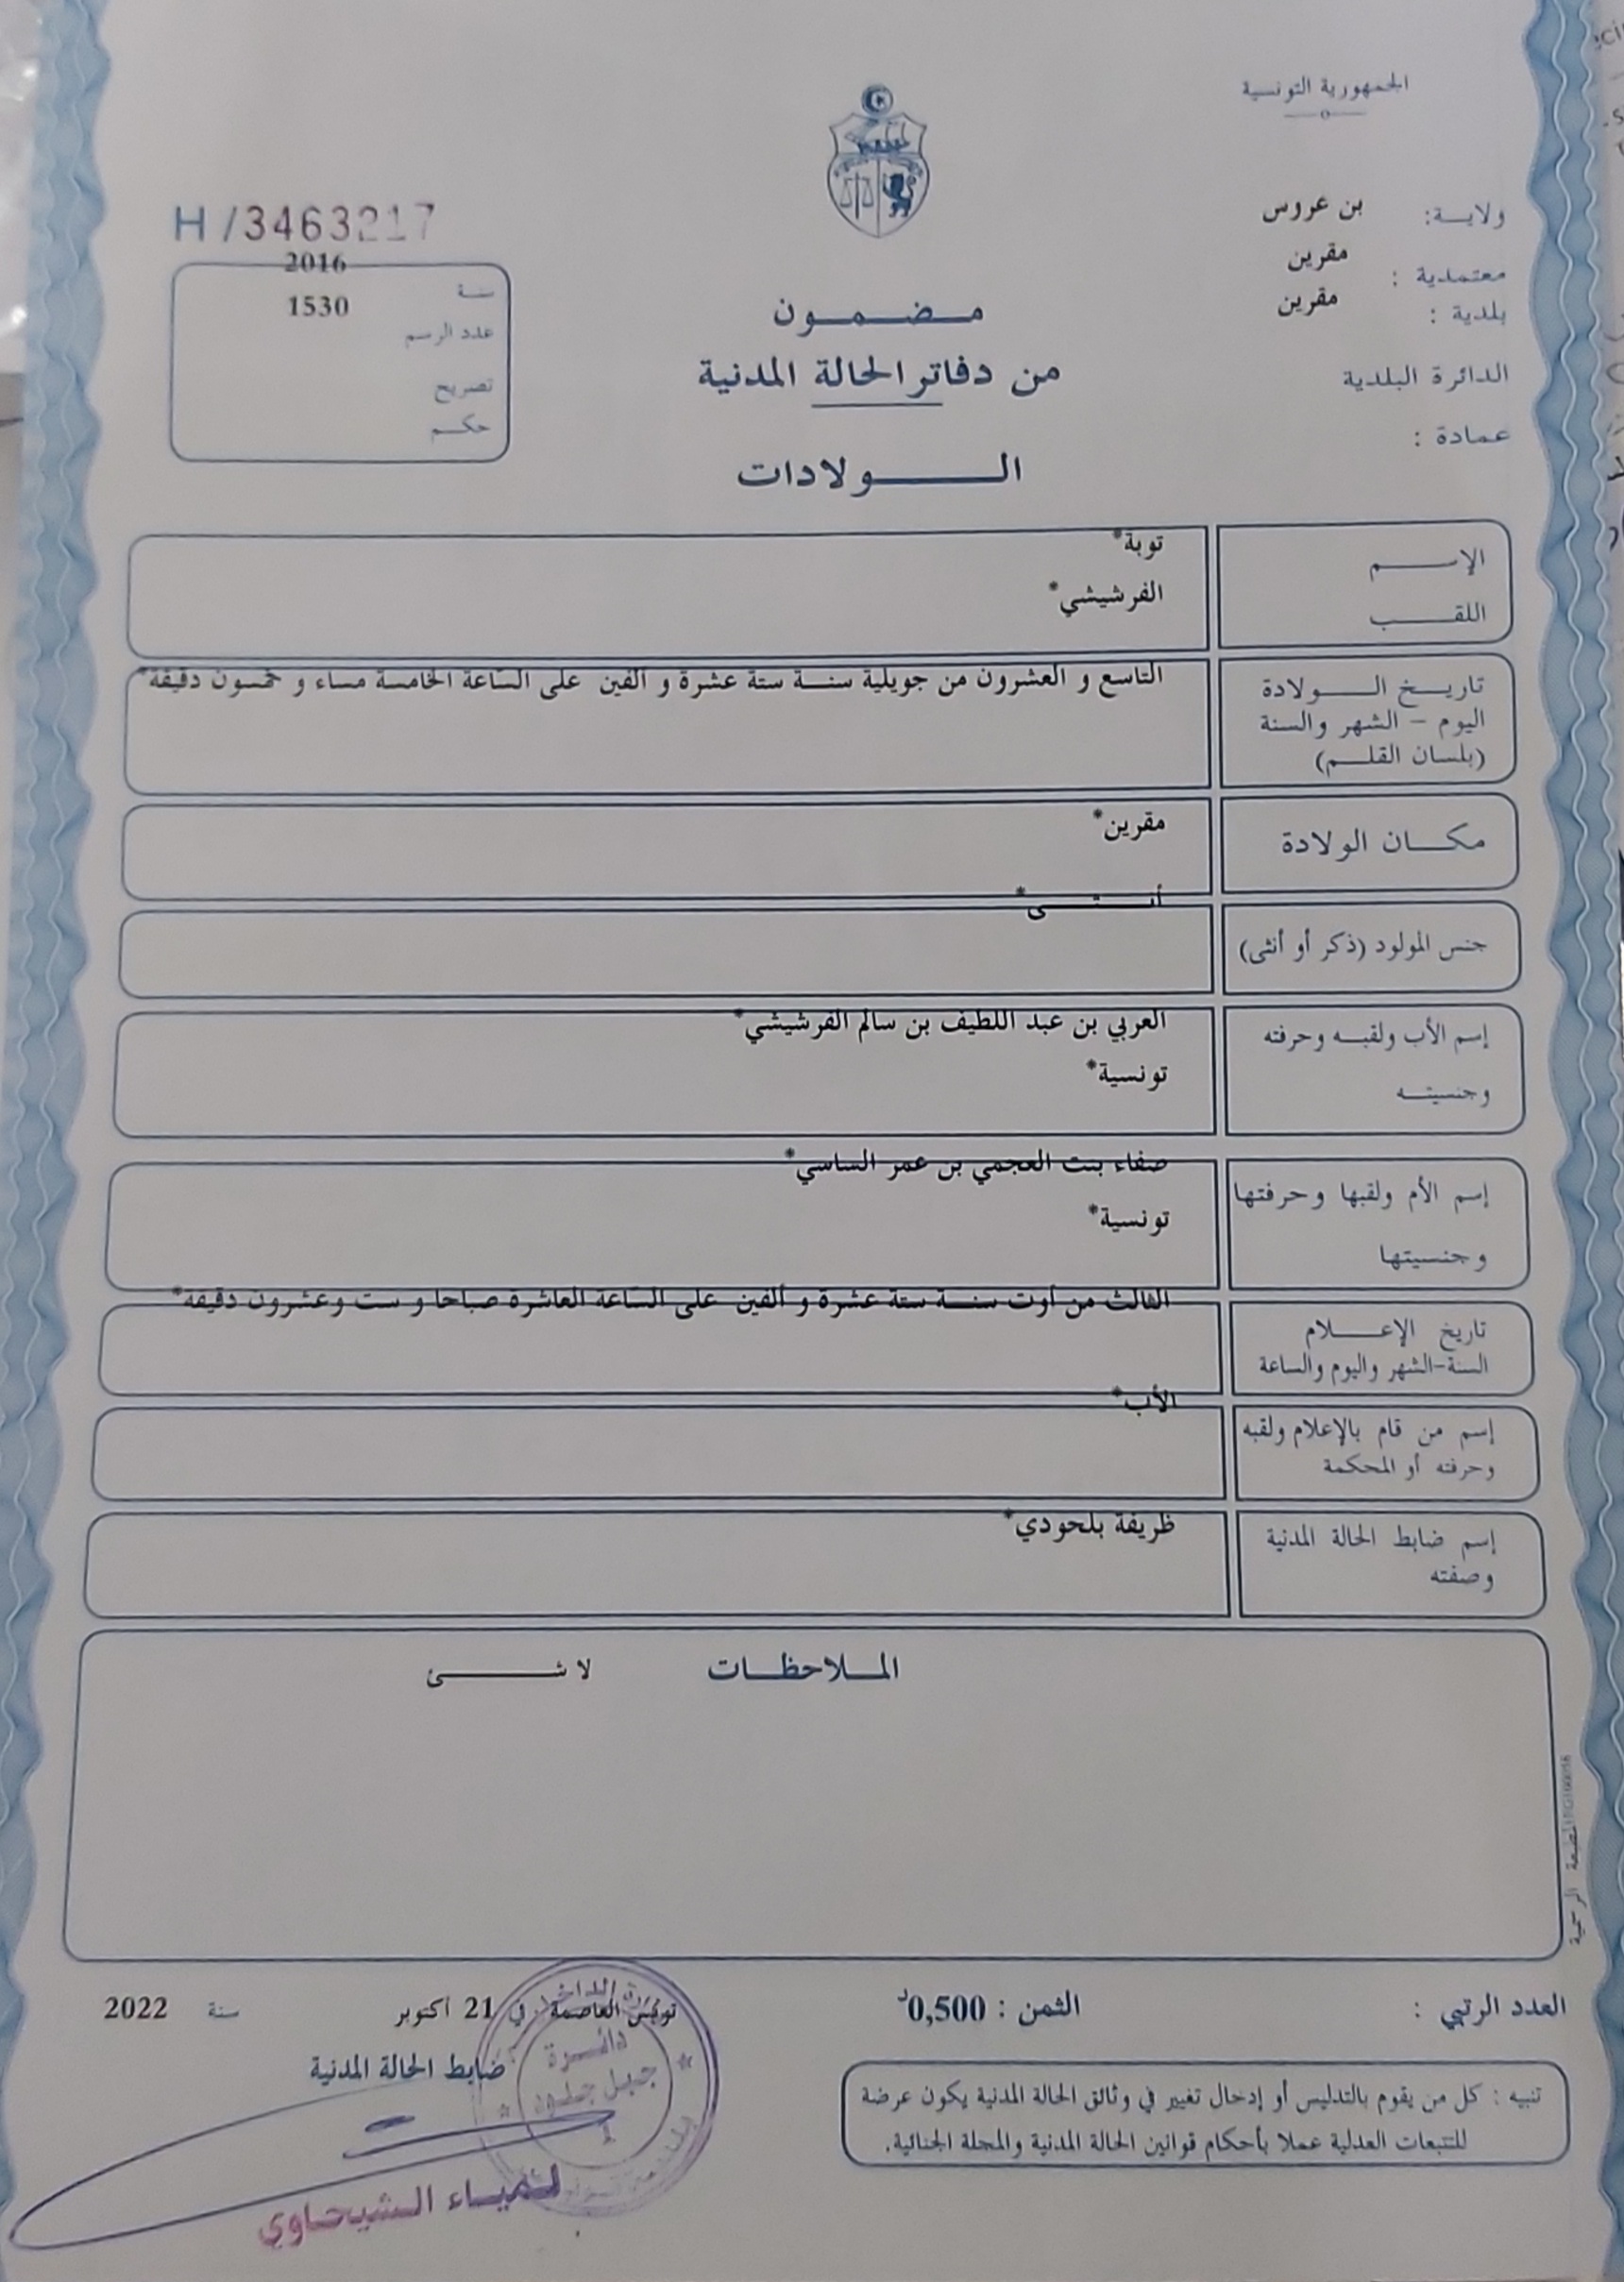 الجمهورية التونسية
ولاية: بن عروس
معتمدية : مقرين
بلدية : مقرين
الدائرة البلدية
عمادة :
H /3463217
سنة 2016
عدد الرسم 1530
تصريح
حكم
مضمون
من دفاتر الحالة المدنية
الولادات
الإسم توبة*
اللقب الفرشيشي*
تاريخ الولادة التاسع و العشرون من جويلية سنة ستة عشرة و ألفين على الساعة الخامسة مساء و خمسون دقيقة*
اليوم - الشهر والسنة
(بلسان القلم)
مكان الولادة مقرين*
جنس المولود (ذكر أو أنثى) أنثى*
إسم الأب ولقبه وحرفته العربي بن عبد اللطيف بن سالم الفرشيشي*
وجنسيته تونسية*
إسم الأم ولقبها وحرفتها صفاء بنت العجمي بن عمر الساسي*
وجنسيتها تونسية*
تاريخ الإعلام الثالث من أوت سنة ستة عشرة و ألفين على الساعة العاشرة صباحا و ست وعشرون دقيقة*
السنة-الشهر واليوم والساعة
إسم من قام بالإعلام ولقبه الأب*
وحرفته أو المحكمة
إسم ضابط الحالة المدنية ظريفة بلحودي*
وصفته
الملاحظات لا شئ
المطبعة الرسمية
العدد الرتبي :
الثمن : 0,500د
تونس العاصمة في 21 أكتوبر سنة 2022
ضابط الحالة المدنية
دائرة
جبل جلود
1
لمياء الشيحاوي
تنبيه : كل من يقوم بالتدليس أو إدخال تغيير في وثائق الحالة المدنية يكون عرضة
للتتبعات العدلية عملا بأحكام قوانين الحالة المدنية والمجلة الجنائية.